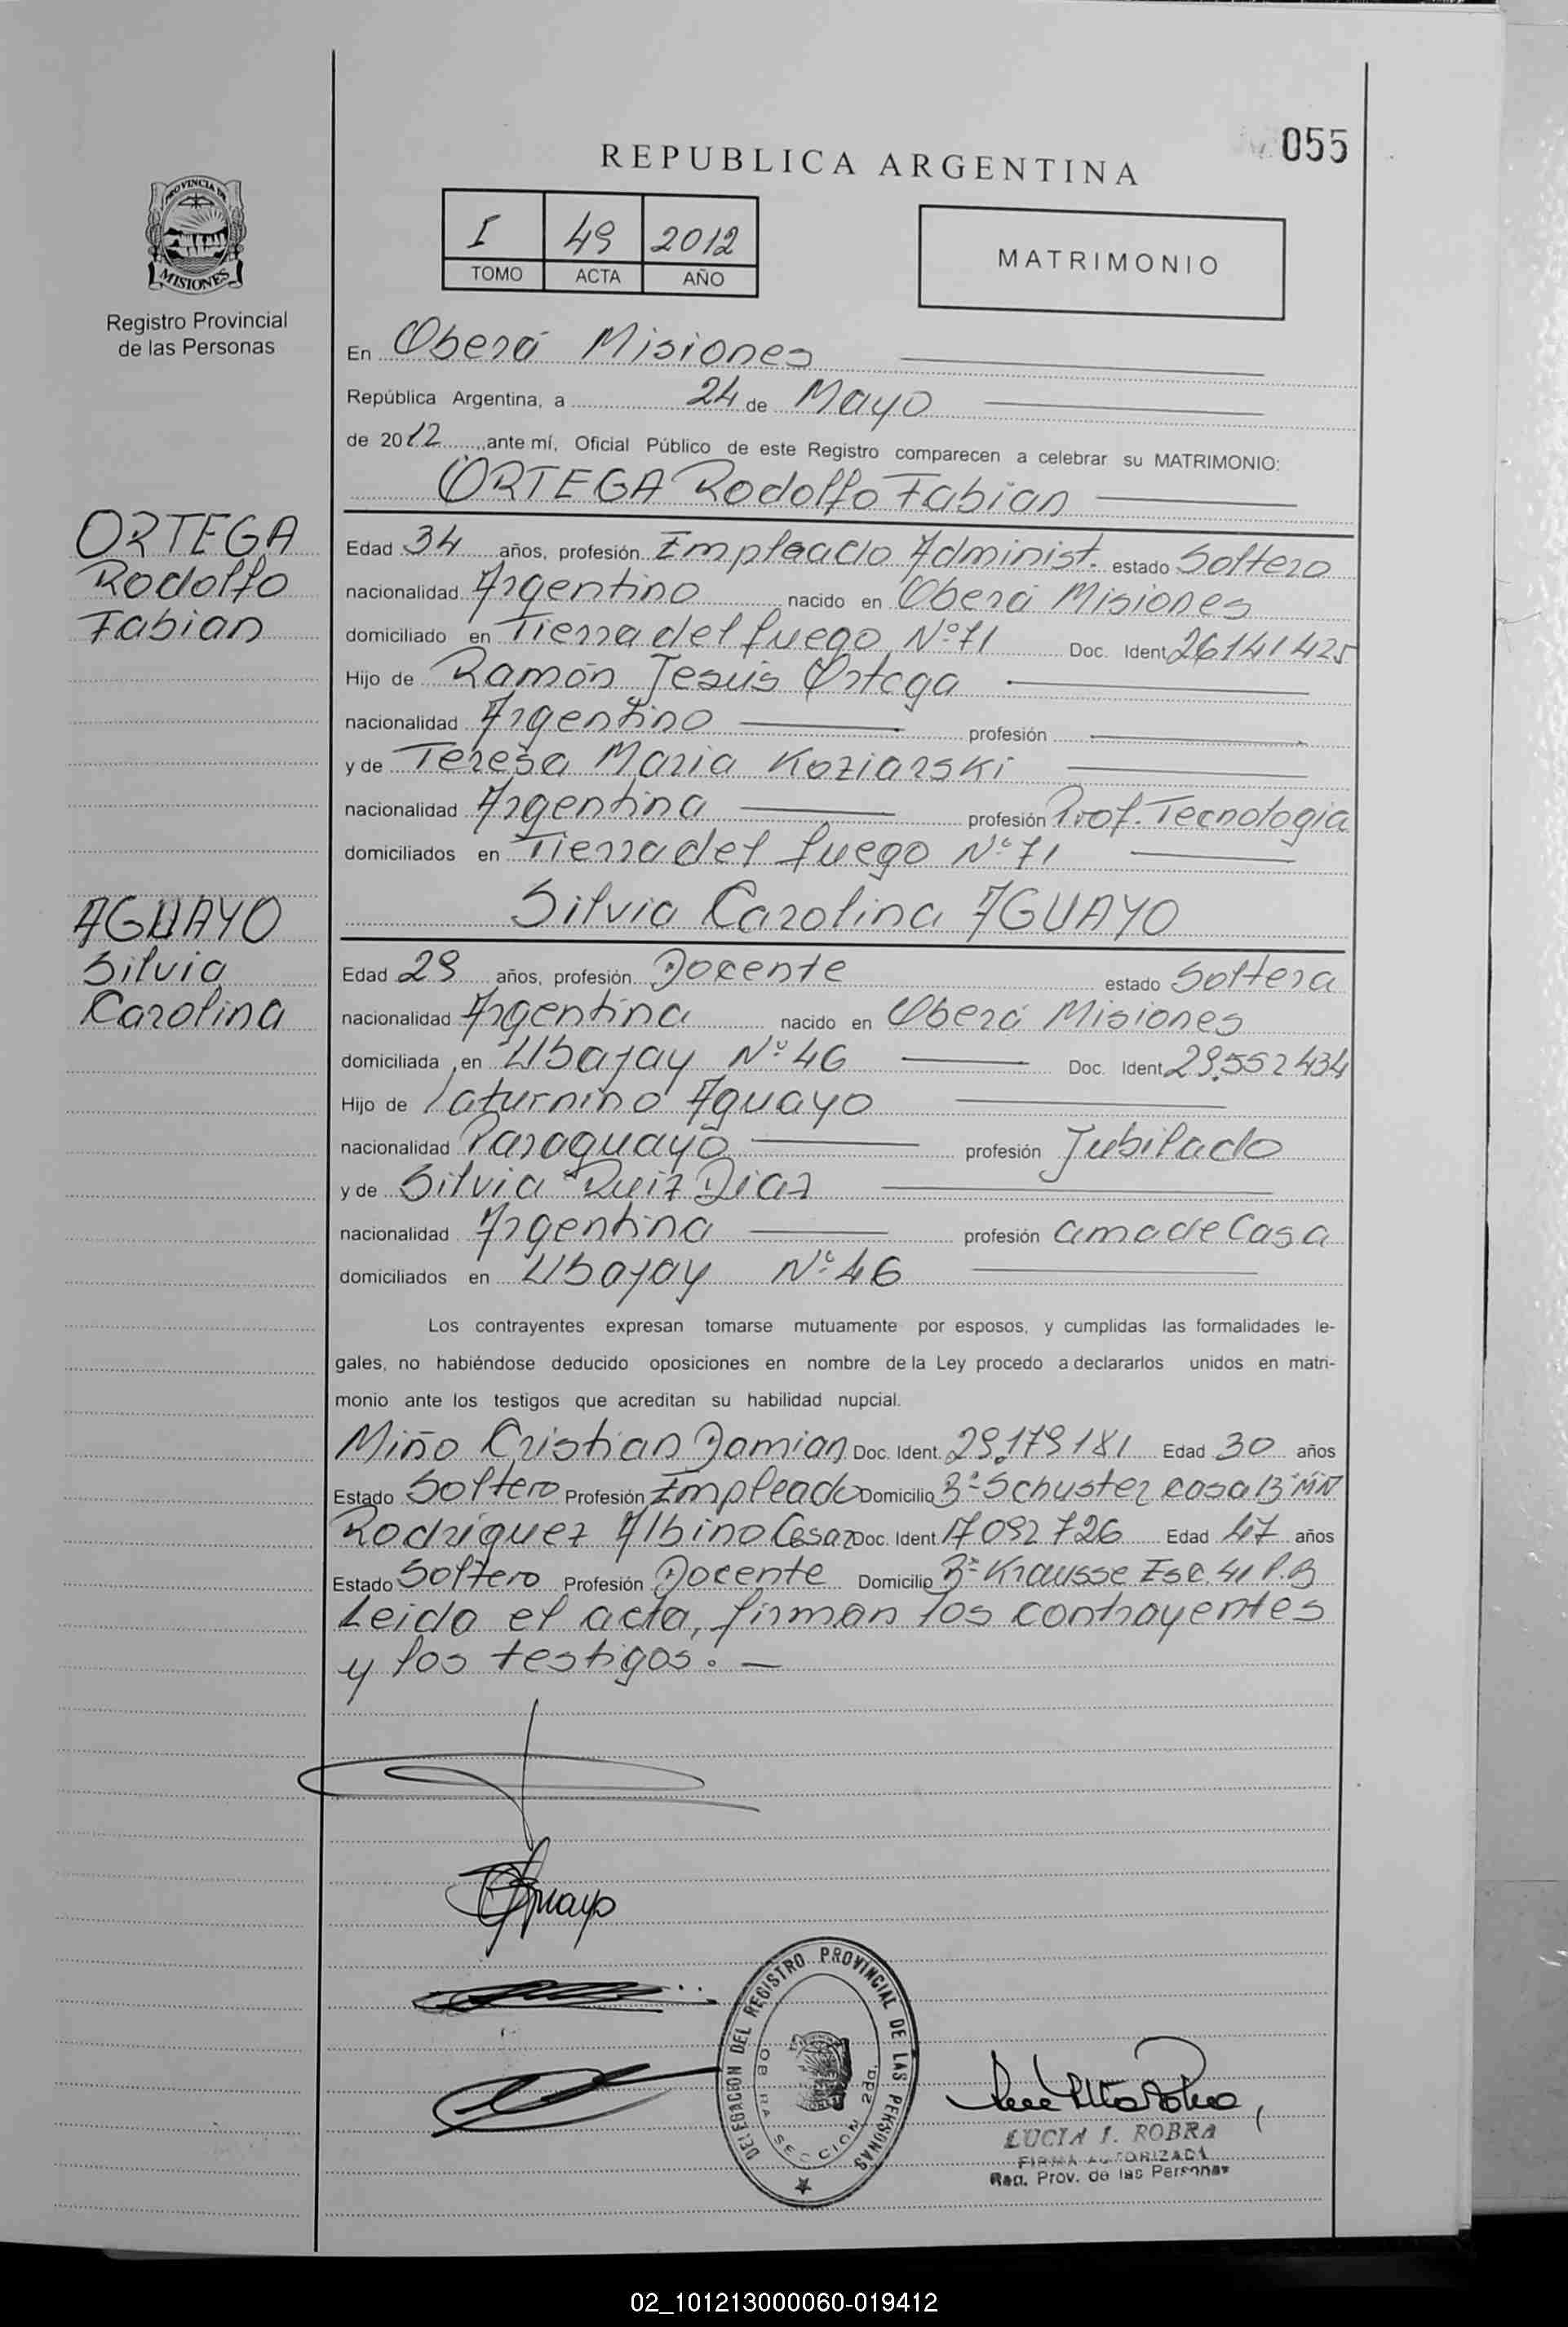 055
REPUBLICA ARGENTINA
PROVINCIA DE
MISIONES
Registro Provincial
de las Personas
I 49 2012
TOMO ACTA AÑO
MATRIMONIO
En Oberá Misiones
República Argentina, a 24 de Mayo
de 2012 ante mí, Oficial Público de este Registro comparecen a celebrar su MATRIMONIO:
ORTEGA Rodolfo Fabian
ORTEGA
Rodolfo
Fabian
Edad 34 años, profesión Empleado Administ. estado Soltero
nacionalidad Argentino nacido en Oberá Misiones
domiciliado en Tierra del fuego Nº 71 Doc. Ident 26141425
Hijo de Ramón Jesús Ortega
nacionalidad Argentino profesión
y de Teresa Maria Koziarski
nacionalidad Argentina profesión Prof. Tecnologia
domiciliados en Tierra del fuego Nº 71
Silvia Carolina AGUAYO
AGUAYO
Silvia
Carolina
Edad 29 años, profesión Docente estado Soltera
nacionalidad Argentina nacido en Oberá Misiones
domiciliada en Ubajay Nº 46 Doc. Ident 29.552434
Hijo de Saturnino Aguayo
nacionalidad Paraguayo profesión Jubilado
y de Silvia Ruiz Diaz
nacionalidad Argentina profesión ama de Casa
domiciliados en Ubajay Nº 46
Los contrayentes expresan tomarse mutuamente por esposos, y cumplidas las formalidades le-
gales, no habiéndose deducido oposiciones en nombre de la Ley procedo a declararlos unidos en matri-
monio ante los testigos que acreditan su habilidad nupcial.
Miño Cristian Damian Doc. Ident. 29.179181 Edad 30 años
Estado Soltero Profesión Empleado Domicilio Bº Schuster casa 13 MN
Rodriguez Albino Cesar Doc. Ident 17092726 Edad 47 años
Estado Soltero Profesión Docente Domicilio Bº Krausse Esc. 41 P.B
Leido el acta, firman los contrayentes
y los testigos. —
DELEGACION DEL REGISTRO PROVINCIAL DE LAS PERSONAS
OBERA SECCION 2da.
LUCIA I. ROBRA
FIRMA AUTORIZADA
Reg. Prov. de las Personas
02_101213000060-019412